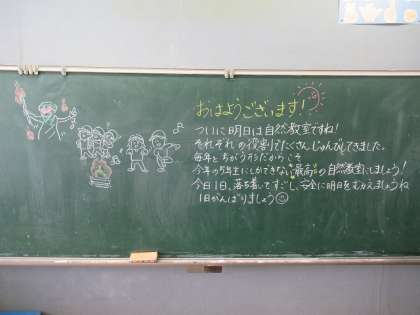 おはようございます!
ついに明日は自然教室ですね!
それぞれの役割でたくさんじゅんびしてきました。
毎年とちがう形だからこそ
今年の5年生にしかできない"最高"の自然教室にしましょう!
今日1日、落ち着いてすごし、安全に明日をむかえましょうね
1日がんばりましょう